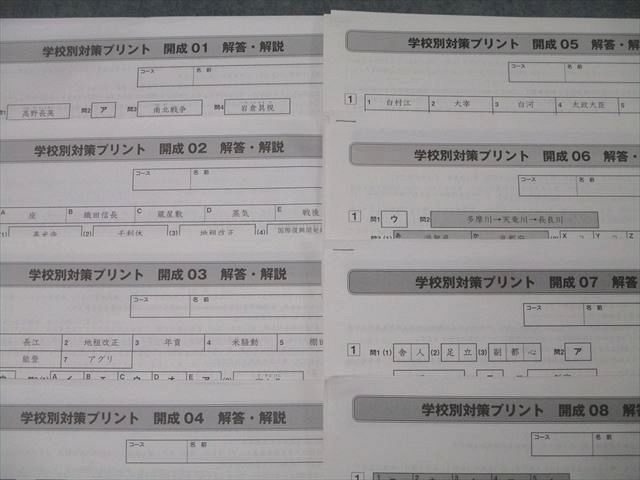 学校別対策プリント 開成 01 解答・解説
コース 名前
問1 高野長英 問2 ア 問3 南北戦争 問4 岩倉具視
学校別対策プリント 開成 02 解答・解説
コース 名前
A 座 B 織田信長 C 蔵屋敷 D 蒸気 E 戦後
(2) 千利休 (3) 地租改正 (4)
学校別対策プリント 開成 03 解答・解説
コース 名前
長江 2 地租改正 3 年貢 4 米騒動 5 棚田
能登 7 アグリ
学校別対策プリント 開成 04 解答・解説
コース 名前
学校別対策プリント 開成 05 解答・解
コース 名前
1 1 白村江 2 大宰 3 白河 4 太政大臣 5
学校別対策プリント 開成 06 解答・
コース 名前
1 問1 ウ 問2 多摩川→天竜川→長良川
学校別対策プリント 開成 07 解答
コース 名前
1 問1 (1) 舎人 (2) 足立 (3) 副都心 問2 ア
学校別対策プリント 開成 08 解
コース 名前
1